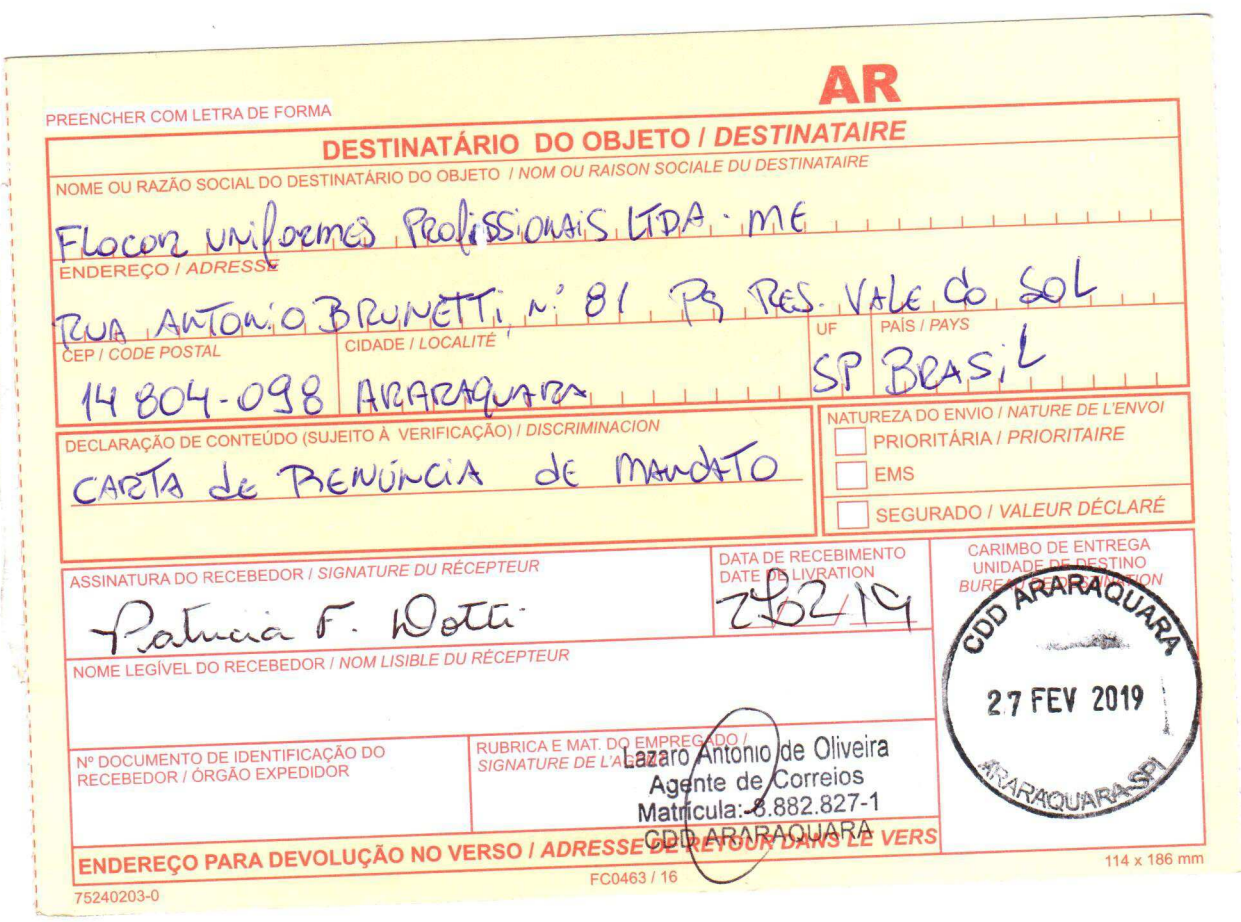 AR
PREENCHER COM LETRA DE FORMA
DESTINATÁRIO DO OBJETO / DESTINATAIRE
NOME OU RAZÃO SOCIAL DO DESTINATÁRIO DO OBJETO / NOM OU RAISON SOCIALE DU DESTINATAIRE
Flocor Uniformes Profissionais LTDA - ME
ENDEREÇO / ADRESSE
Rua Antonio Brunetti, nº 81 Pq Res. Vale do Sol
CEP / CODE POSTAL CIDADE / LOCALITÉ UF PAÍS / PAYS
14804-098 Araraquara SP Brasil
DECLARAÇÃO DE CONTEÚDO (SUJEITO À VERIFICAÇÃO) / DISCRIMINACION
Carta de Renúncia de Mandato
NATUREZA DO ENVIO / NATURE DE L'ENVOI
PRIORITÁRIA / PRIORITAIRE
EMS
SEGURADO / VALEUR DÉCLARÉ
ASSINATURA DO RECEBEDOR / SIGNATURE DU RÉCEPTEUR
Patricia F. Dotti
DATA DE RECEBIMENTO
DATE DE LIVRATION
CARIMBO DE ENTREGA
UNIDADE DE DESTINO
BUREAU DE DESTINATION
CDD ARARAQUARA
27 FEV 2019
ARARAQUARA-SPI
NOME LEGÍVEL DO RECEBEDOR / NOM LISIBLE DU RÉCEPTEUR
Nº DOCUMENTO DE IDENTIFICAÇÃO DO
RECEBEDOR / ÓRGÃO EXPEDIDOR
RUBRICA E MAT. DO EMPREGADO /
SIGNATURE DE L'AGENT
Lazaro Antonio de Oliveira
Agente de Correios
Matrícula: 8.882.827-1
CDD ARARAQUARA
ENDEREÇO PARA DEVOLUÇÃO NO VERSO / ADRESSE DE RETOUR DANS LE VERS
75240203-0
FC0463 / 16
114 x 186 mm